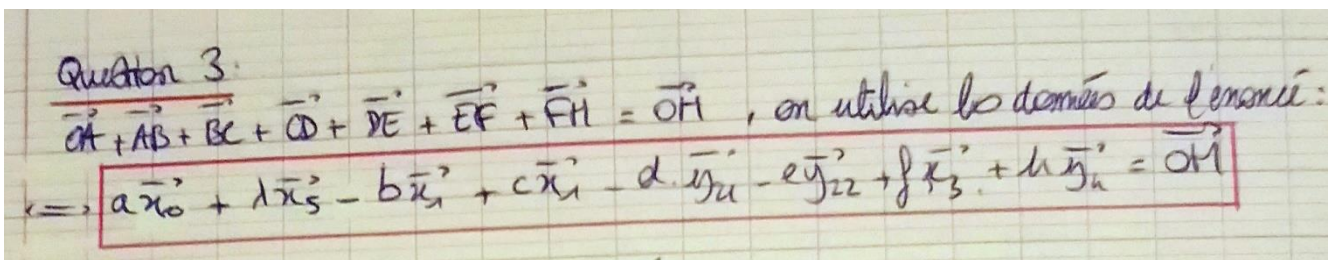 Question 3.
$\overrightarrow{OA} + \overrightarrow{AB} + \overrightarrow{BC} + \overrightarrow{CD} + \overrightarrow{DE} + \overrightarrow{EF} + \overrightarrow{FH} = \overrightarrow{OH}$, on utilise les données de l'énoncé :
$\Leftrightarrow a\vec{x_0} + \lambda\vec{x_5} - b\vec{x_1} + c\vec{x_1} - d.\vec{y_{21}} - e\vec{y_{22}} + f\vec{x_3} + h\vec{y_4} = \overrightarrow{OH}$